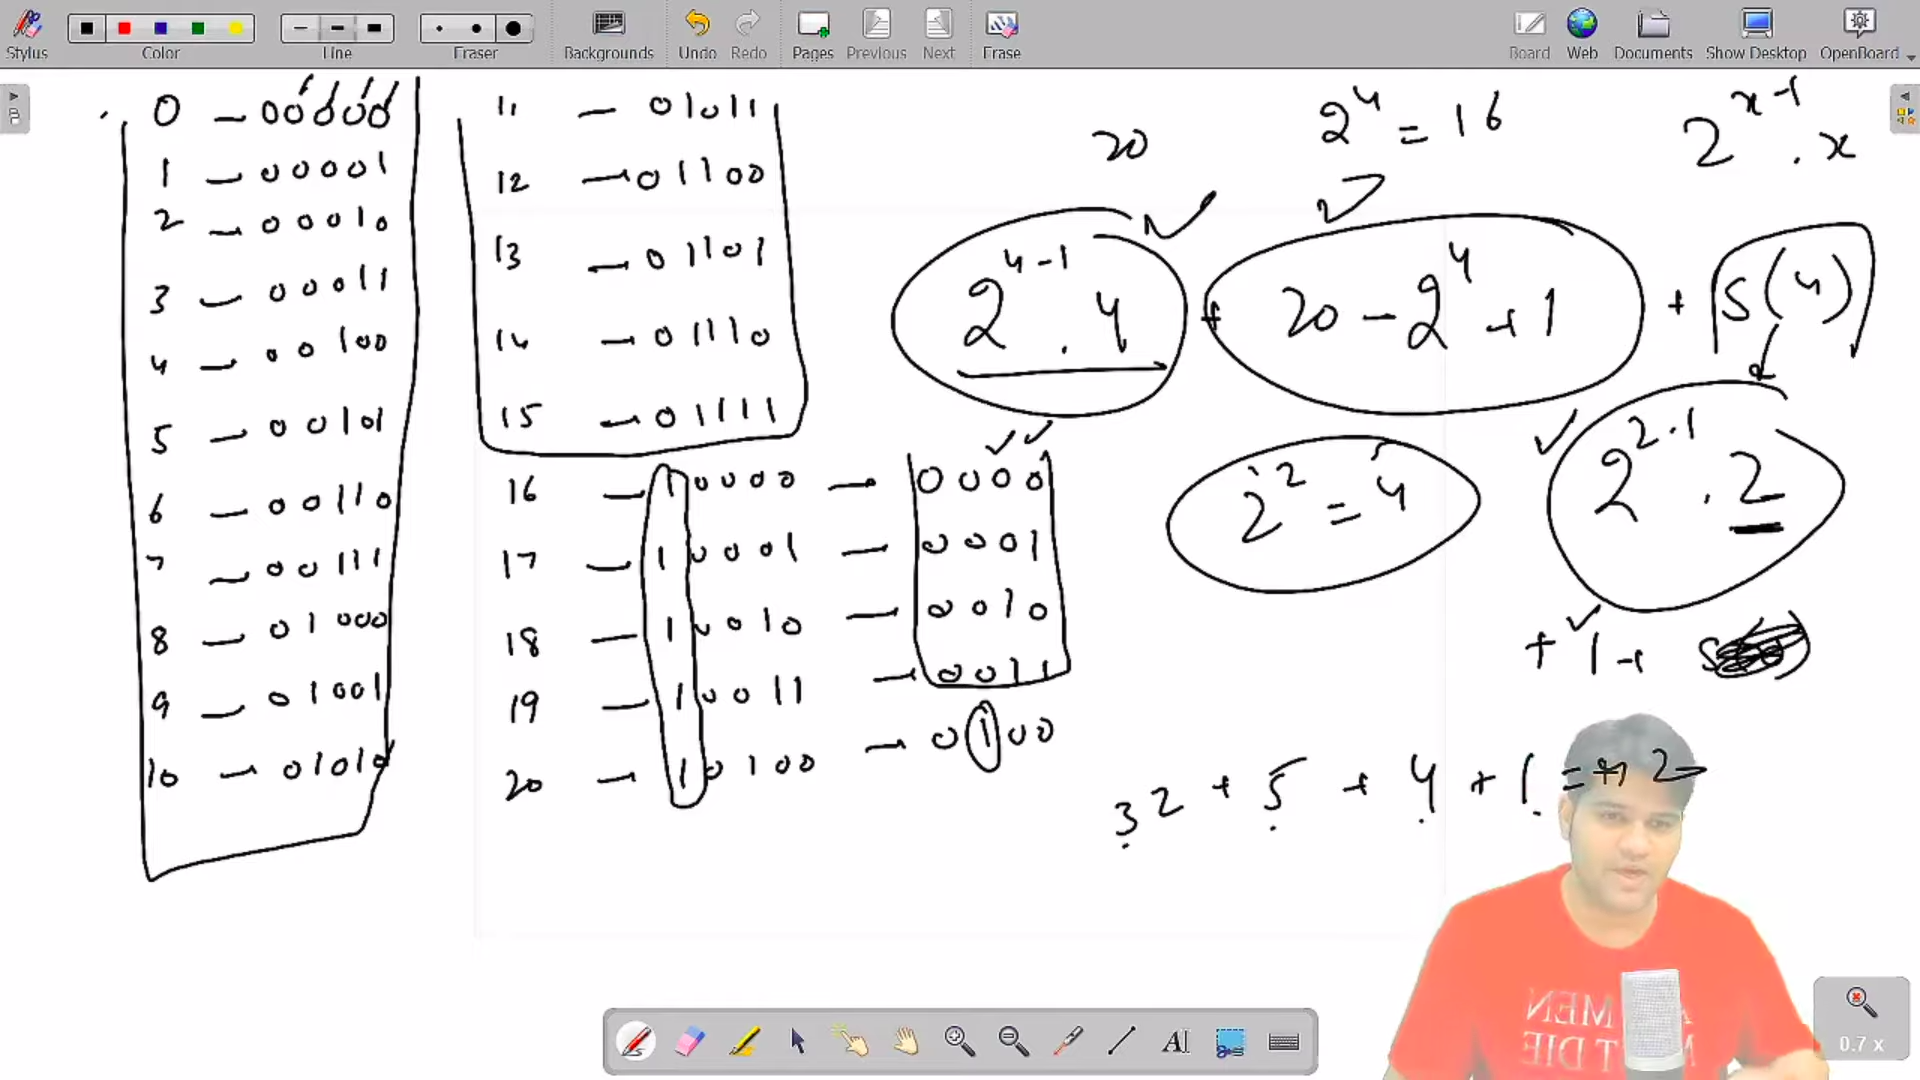 Stylus Color Line Eraser Backgrounds Undo Redo Pages Previous Next Erase Board Web Documents Show Desktop OpenBoard
0 - 00000
1 - 00001
2 - 00010
3 - 00011
4 - 00100
5 - 00101
6 - 00110
7 - 00111
8 - 01000
9 - 01001
10 - 01010
11 - 01011
12 - 01100
13 - 01101
14 - 01110
15 - 01111
16 - 10000 - 0000
17 - 10001 - 0001
18 - 10010 - 0010
19 - 10011 - 0011
20 - 10100 - 0100
20
2^4 = 16
2^(x-1) . x
2^(4-1) . 4 + 20 - 2^4 + 1 + S(4)
2^2 = 4
2^(2-1) . 2
+ 1 +
32 + 5 + 4 + 1 = 42
MEN
T DIE
0.7 x